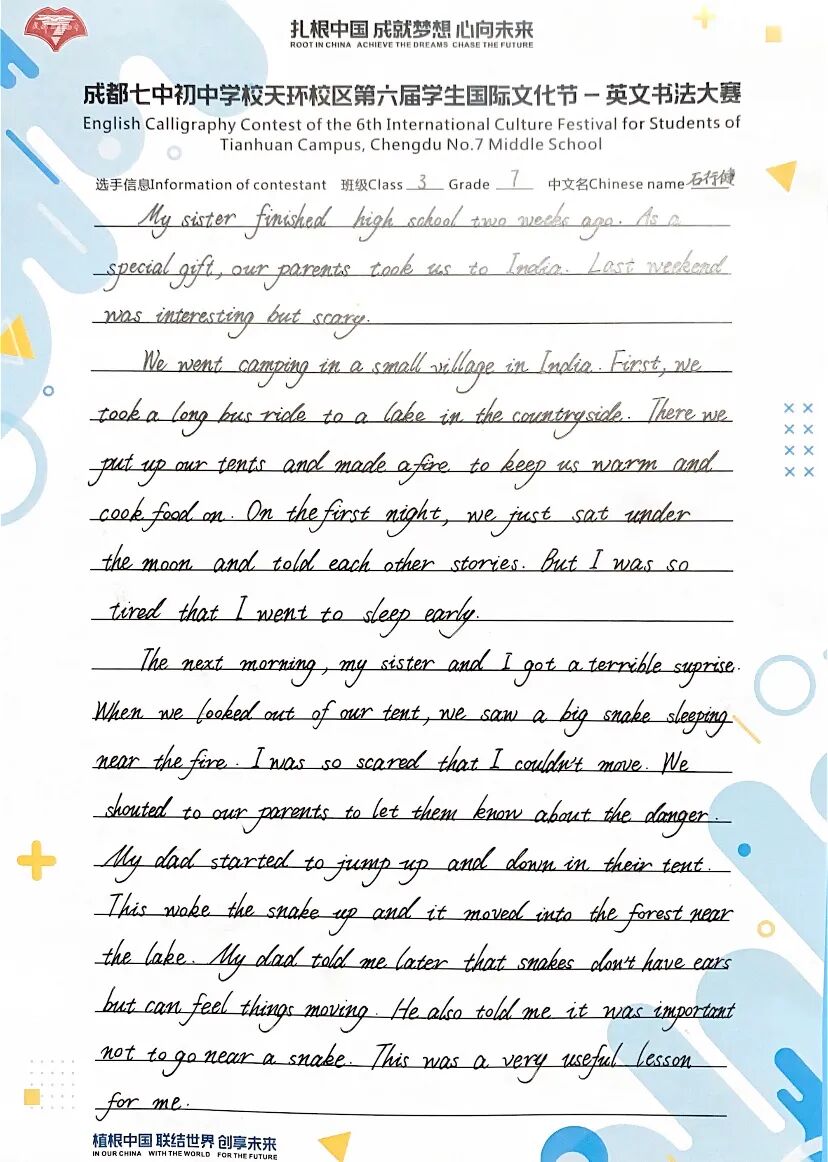 扎根中国 成就梦想 心向未来
ROOT IN CHINA ACHIEVE THE DREAMS CHASE THE FUTURE
成都七中初中学校天环校区第六届学生国际文化节－英文书法大赛
English Calligraphy Contest of the 6th International Culture Festival for Students of
Tianhuan Campus, Chengdu No.7 Middle School
选手信息Information of contestant 班级Class 3 Grade 7 中文名Chinese name 石行健
My sister finished high school two weeks ago. As a
special gift, our parents took us to India. Last weekend
was interesting but scary.
We went camping in a small village in India. First, we
took a long bus ride to a lake in the countryside. There we
put up our tents and made a fire to keep us warm and
cook food on. On the first night, we just sat under
the moon and told each other stories. But I was so
tired that I went to sleep early.
The next morning, my sister and I got a terrible suprise.
When we looked out of our tent, we saw a big snake sleeping
near the fire. I was so scared that I couldn't move. We
shouted to our parents to let them know about the danger.
My dad started to jump up and down in their tent.
This woke the snake up and it moved into the forest near
the lake. My dad told me later that snakes don't have ears
but can feel things moving. He also told me it was important
not to go near a snake. This was a very useful lesson
for me.
植根中国 联结世界 创享未来
IN OUR CHINA WITH THE WORLD FOR THE FUTURE